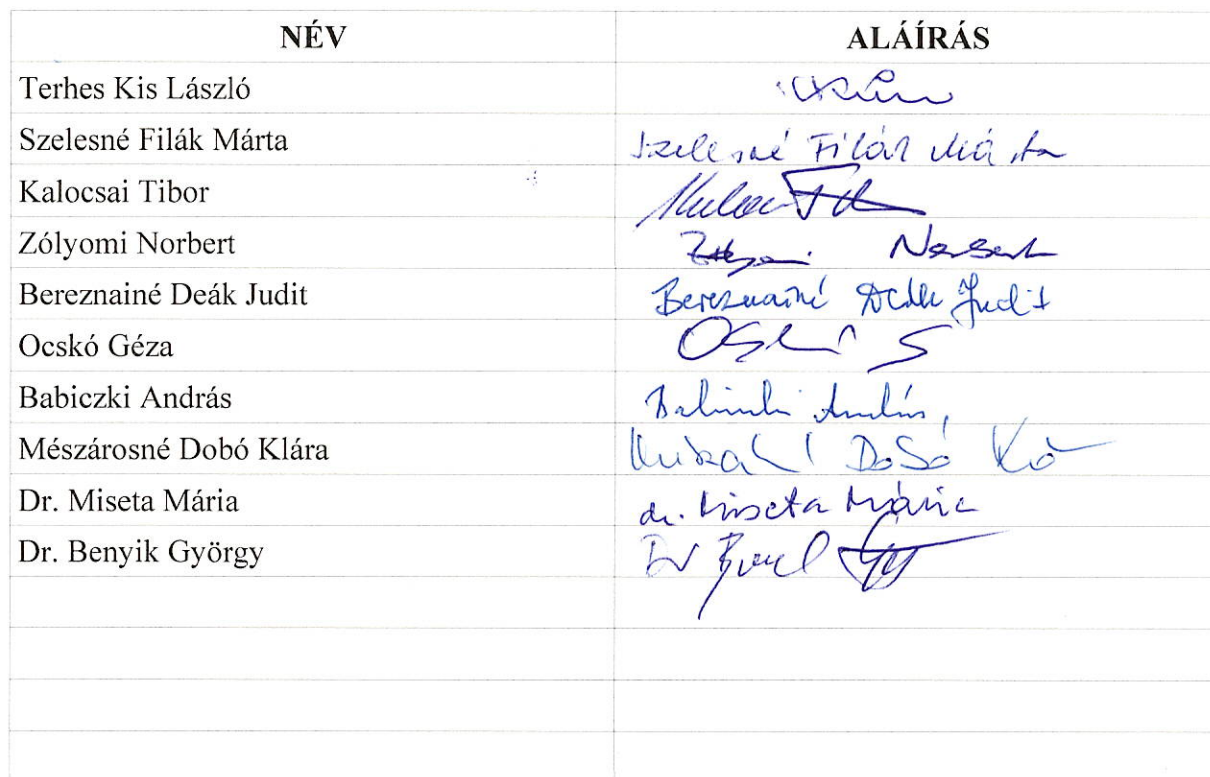 NÉV ALÁÍRÁS
Terhes Kis László
Szelesné Filák Márta Szelesné Filák Márta
Kalocsai Tibor
Zólyomi Norbert Zólyomi Norbert
Bereznainé Deák Judit Bereznainé Deák Judit
Ocskó Géza
Babiczki András András
Mészárosné Dobó Klára Dobó
Dr. Miseta Mária dr. Miseta Mária
Dr. Benyik György Dr